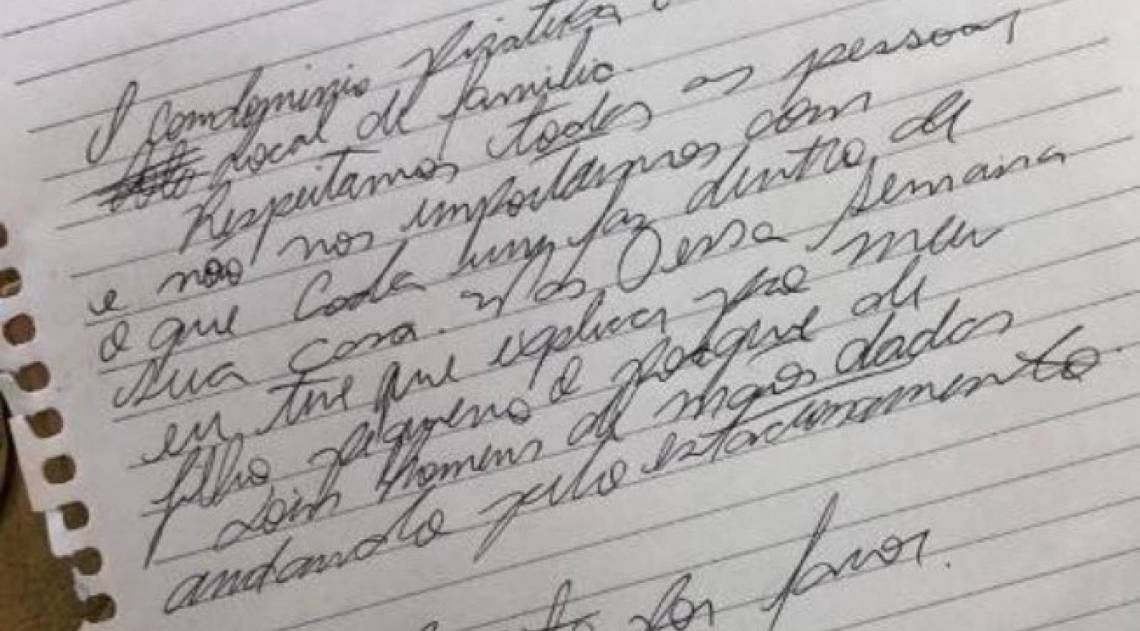 O Condominzio Pizatixa
Local de família.
Respeitamos todas as pessoas
e não nos importamos com
o que cada um faz dentro de
sua casa. Mas essa semana
eu tive que explicar pro meu
filho pequeno o porque de
dois homens de mãos dadas
andando pelo estacionamento.
por favor.